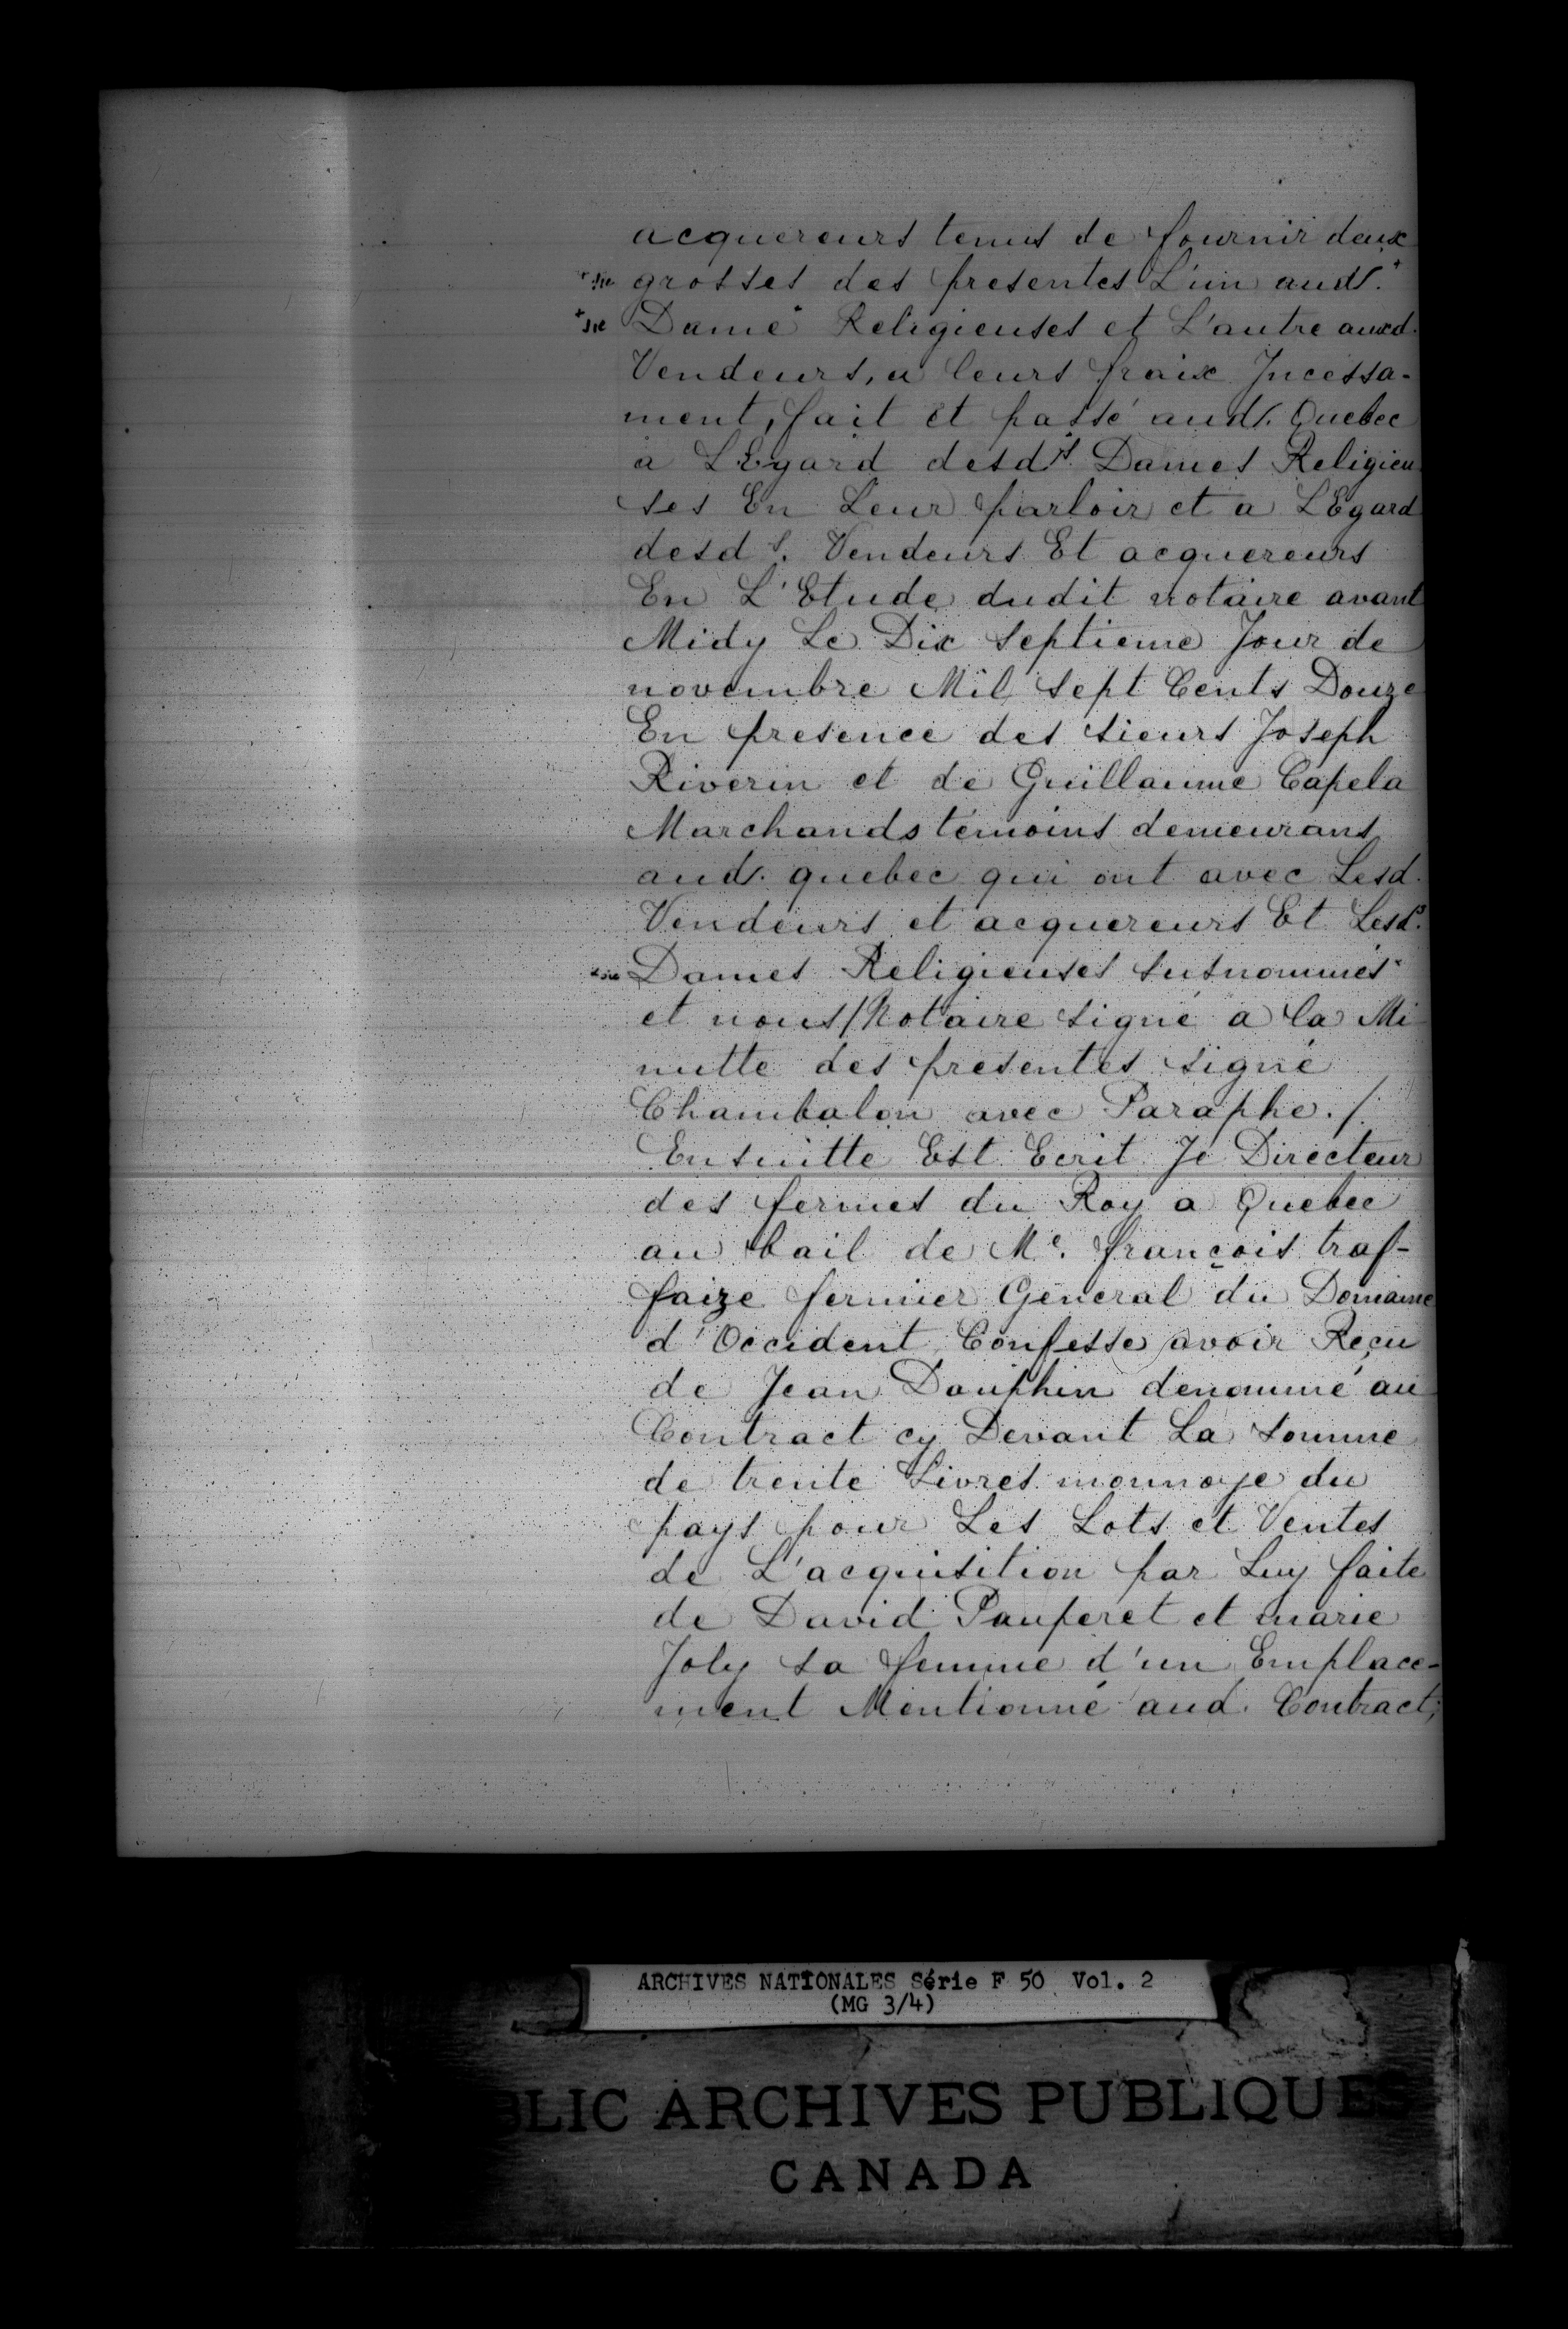 acquereurs tenus de fournir deux
+sic grosses des presentes L'un aud/.+
+sic Dame+ Religieuses et L'autre auxd.
Vendeurs, a leurs fraix Incessa-
ment, fait et passé aud/. Quebec
a LEgard desd/s. Dames Religieu
ses En Leur parloir et a LEgard
desd s. Vendeurs Et acquereurs
En L'Etude dudit notaire avant
Midy Le Dix septieme Jour de
novembre Mil sept Cents Douze
En presence des sieurs Joseph
Riverin et de Guillaume Capela
Marchands témoins demeurans
aud/. quebec qui ont avec Lesd.
Vendeurs et acquereurs Et Lesds.
+sic Dames Religieuses susnommés+
et nous/Notaire signé a la Mi
nutte des presentes signé
Chambalon avec Paraphe./.
Ensuitte Est Ecrit Je Directeur
des fermes du Roy a Quebec
au bail de Me. françois traf-
faize fermier General du Domaine
d'Occident Confesse avoir Reçu
de Jean Dauphin denommé au
Contract cy Devant La somme
de trente Livres monnoye du
pays pour Les Lots et Ventes
de L'acquisition par Luy faite
de David Pauperet et marie
Joly sa femme d'un Emplace-
ment Mentionné aud. Contract;
ARCHIVES NATIONALES Série F 50 Vol. 2
(MG 3/4)
BLIC ARCHIVES PUBLIQUES
CANADA